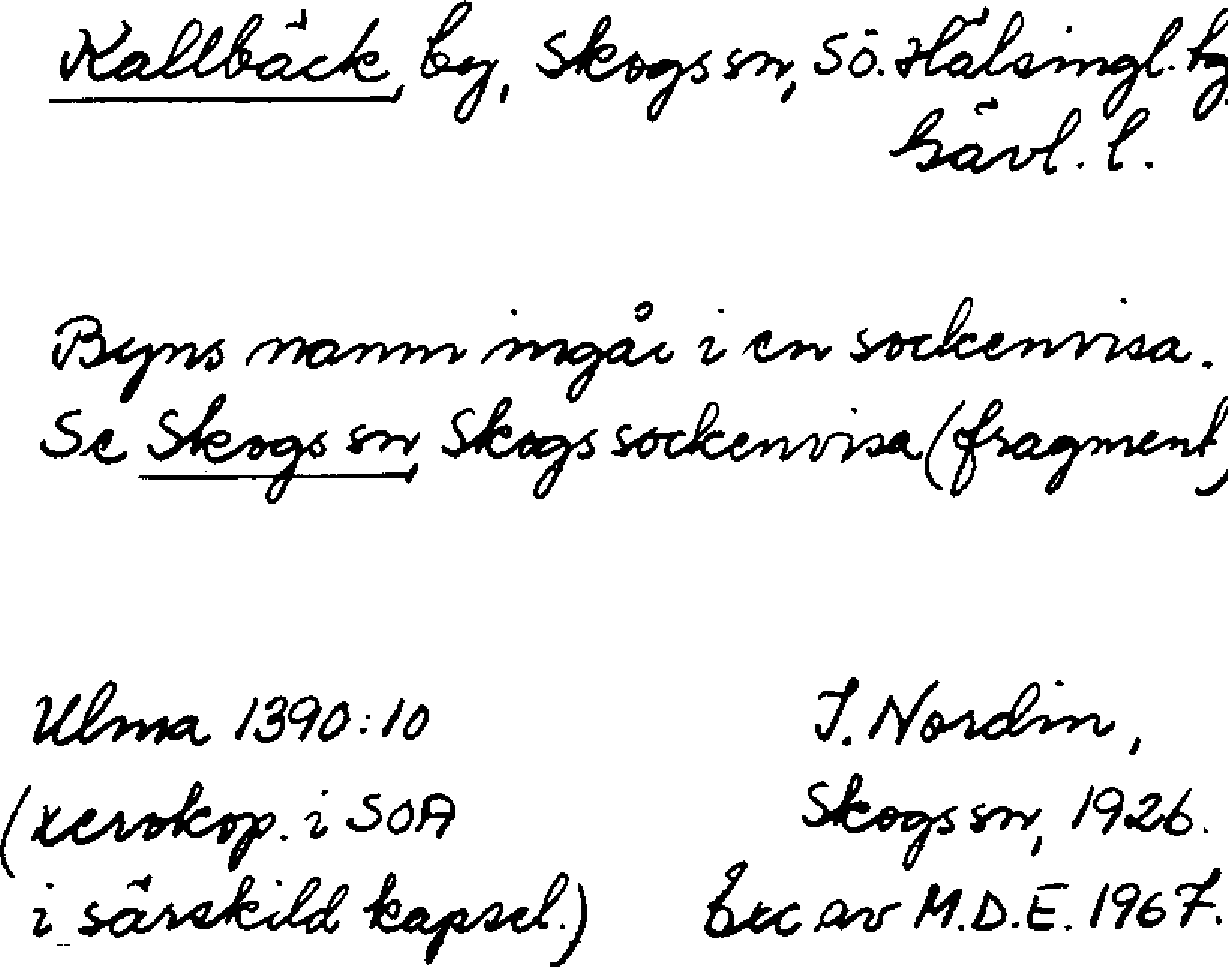 Kallbäck, by, Skogs sn, Sö. Hälsingl. tg
Gävl. l.
Byns namn ingår i en sockenvisa.
Se Skogs sn, Skogs sockenvisa (fragment)
Ulma 1390:10
J. Nordin,
(xerokop. i SOA
Skogs sn, 1926.
i särskild kapsel.)
Exc av M.D.E. 1967.